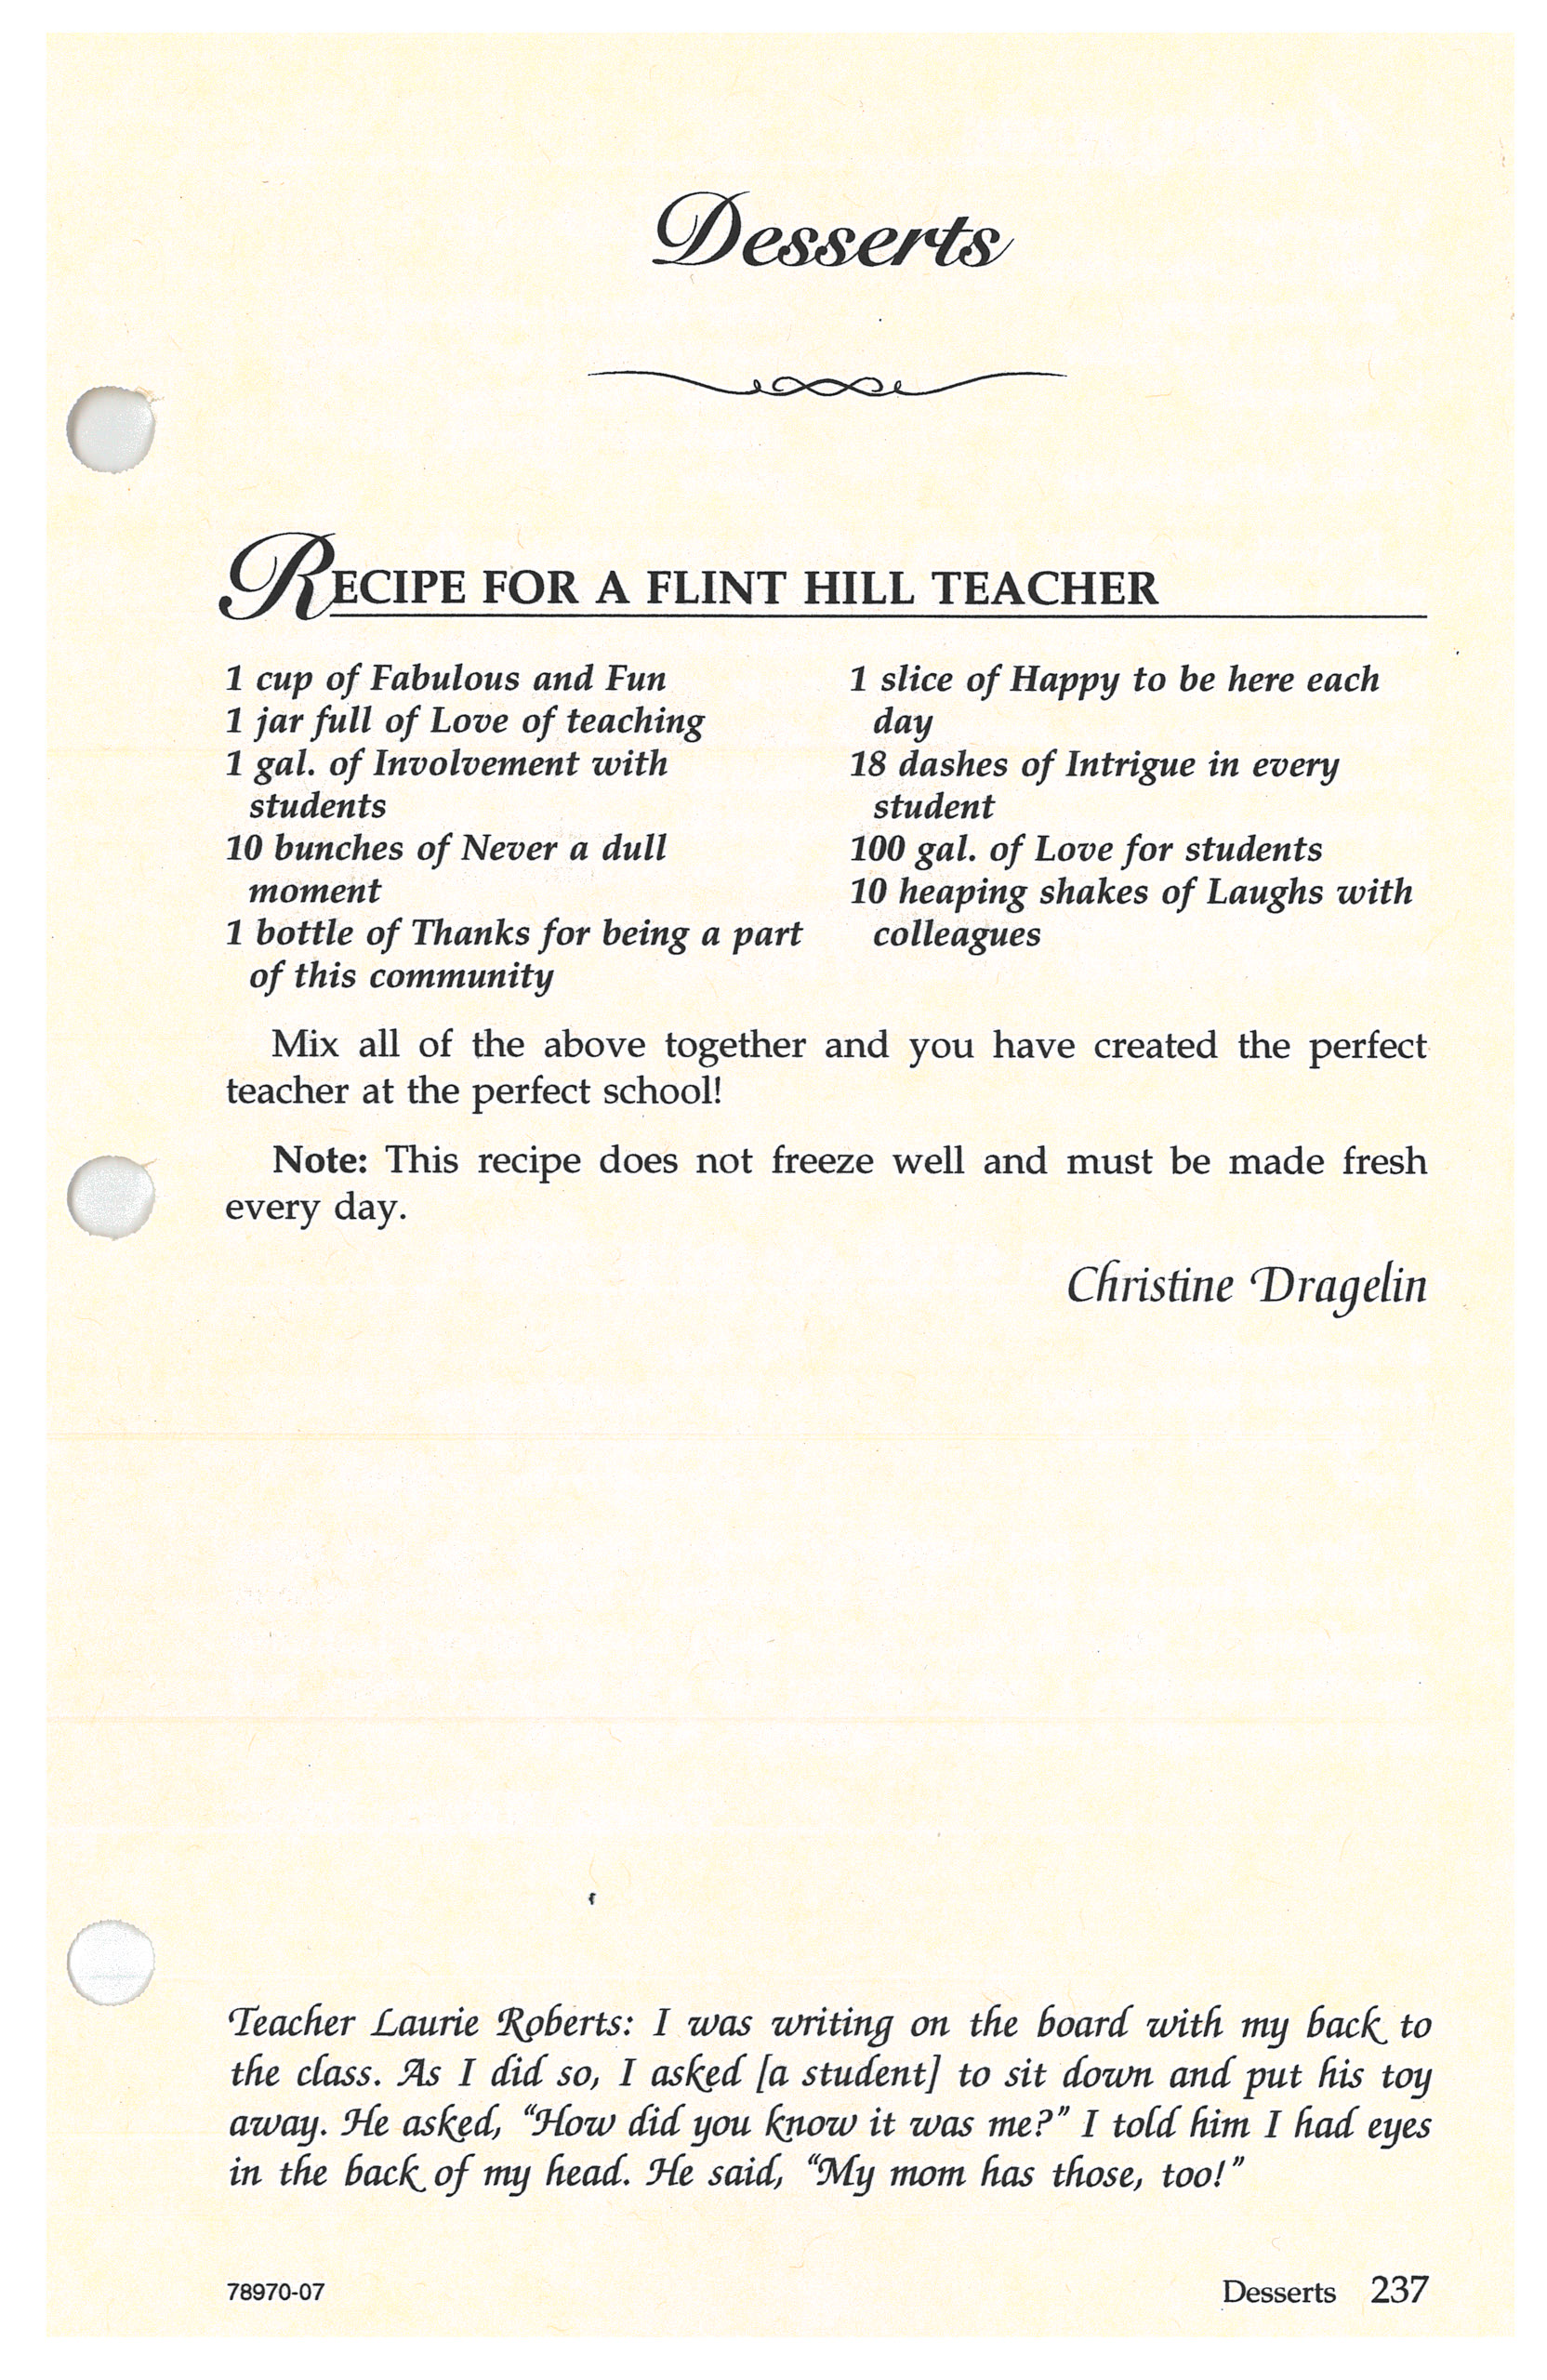 Desserts
RECIPE FOR A FLINT HILL TEACHER
1 cup of Fabulous and Fun
1 jar full of Love of teaching
1 gal. of Involvement with
students
10 bunches of Never a dull
moment
1 bottle of Thanks for being a part
of this community
1 slice of Happy to be here each
day
18 dashes of Intrigue in every
student
100 gal. of Love for students
10 heaping shakes of Laughs with
colleagues
Mix all of the above together and you have created the perfect
teacher at the perfect school!
Note: This recipe does not freeze well and must be made fresh
every day.
Christine Dragelin
Teacher Laurie Roberts: I was writing on the board with my back to
the class. As I did so, I asked [a student] to sit down and put his toy
away. He asked, “How did you know it was me?” I told him I had eyes
in the back of my head. He said, “My mom has those, too!”
78970-07
Desserts 237